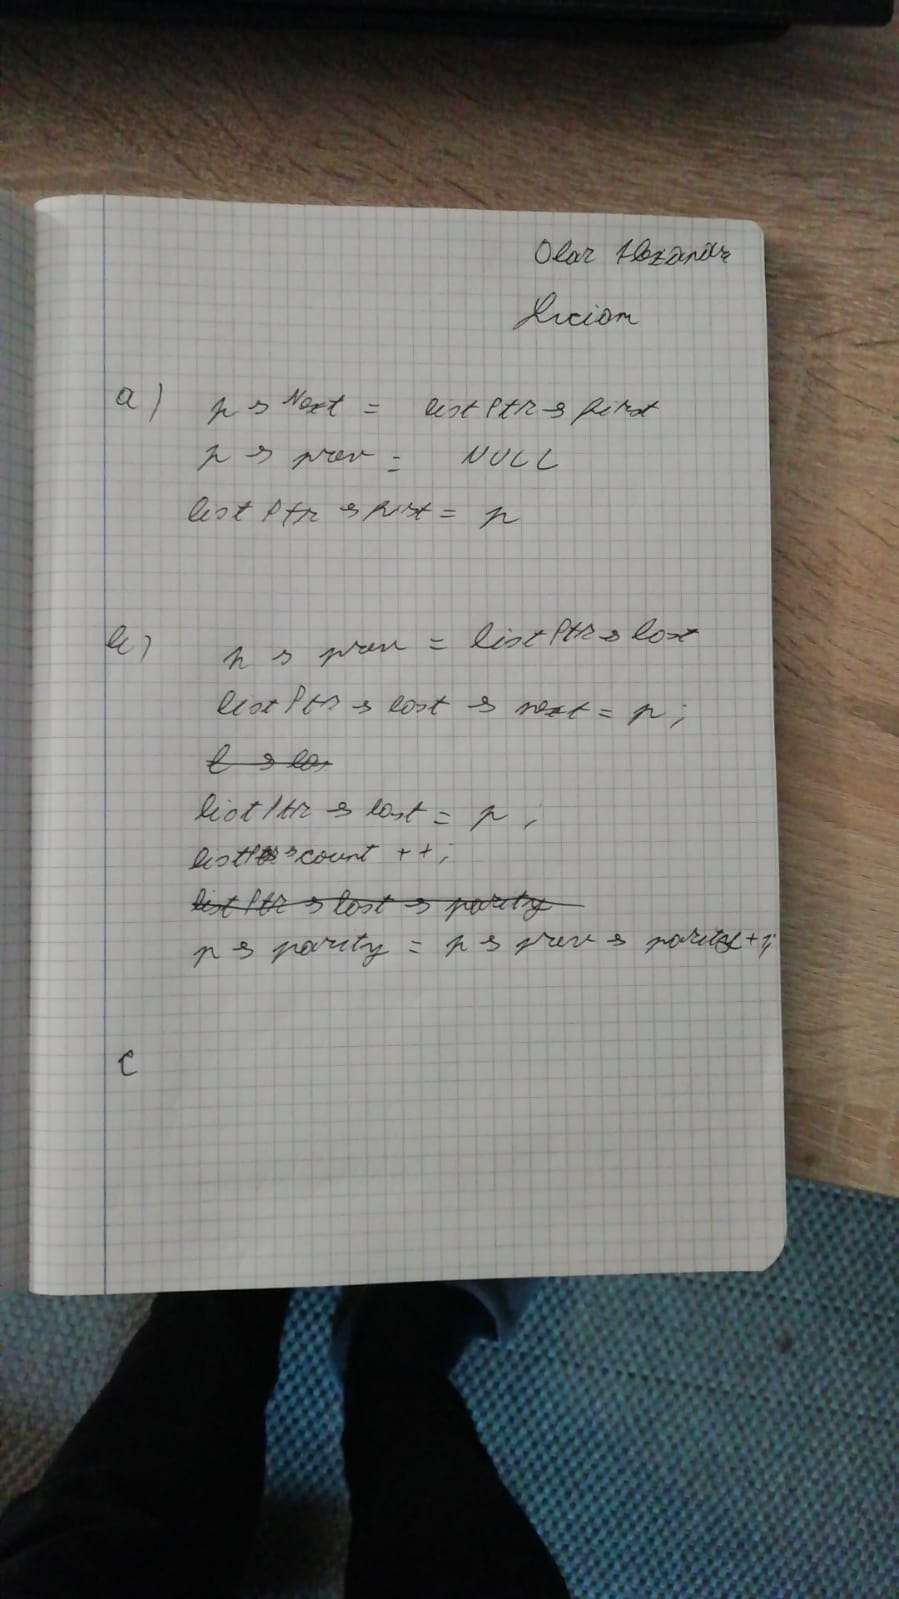 Olar Alexandr
Lucian
a) p → Next = listPtr → first
p → prev = NULL
listPtr → first = p
b) p → prev = listPtr → last
listPtr → last → next = p;
l → las
listPtr → last = p;
listPtr → count ++;
listPtr → last → parity
p → parity = p → prev → parity
c